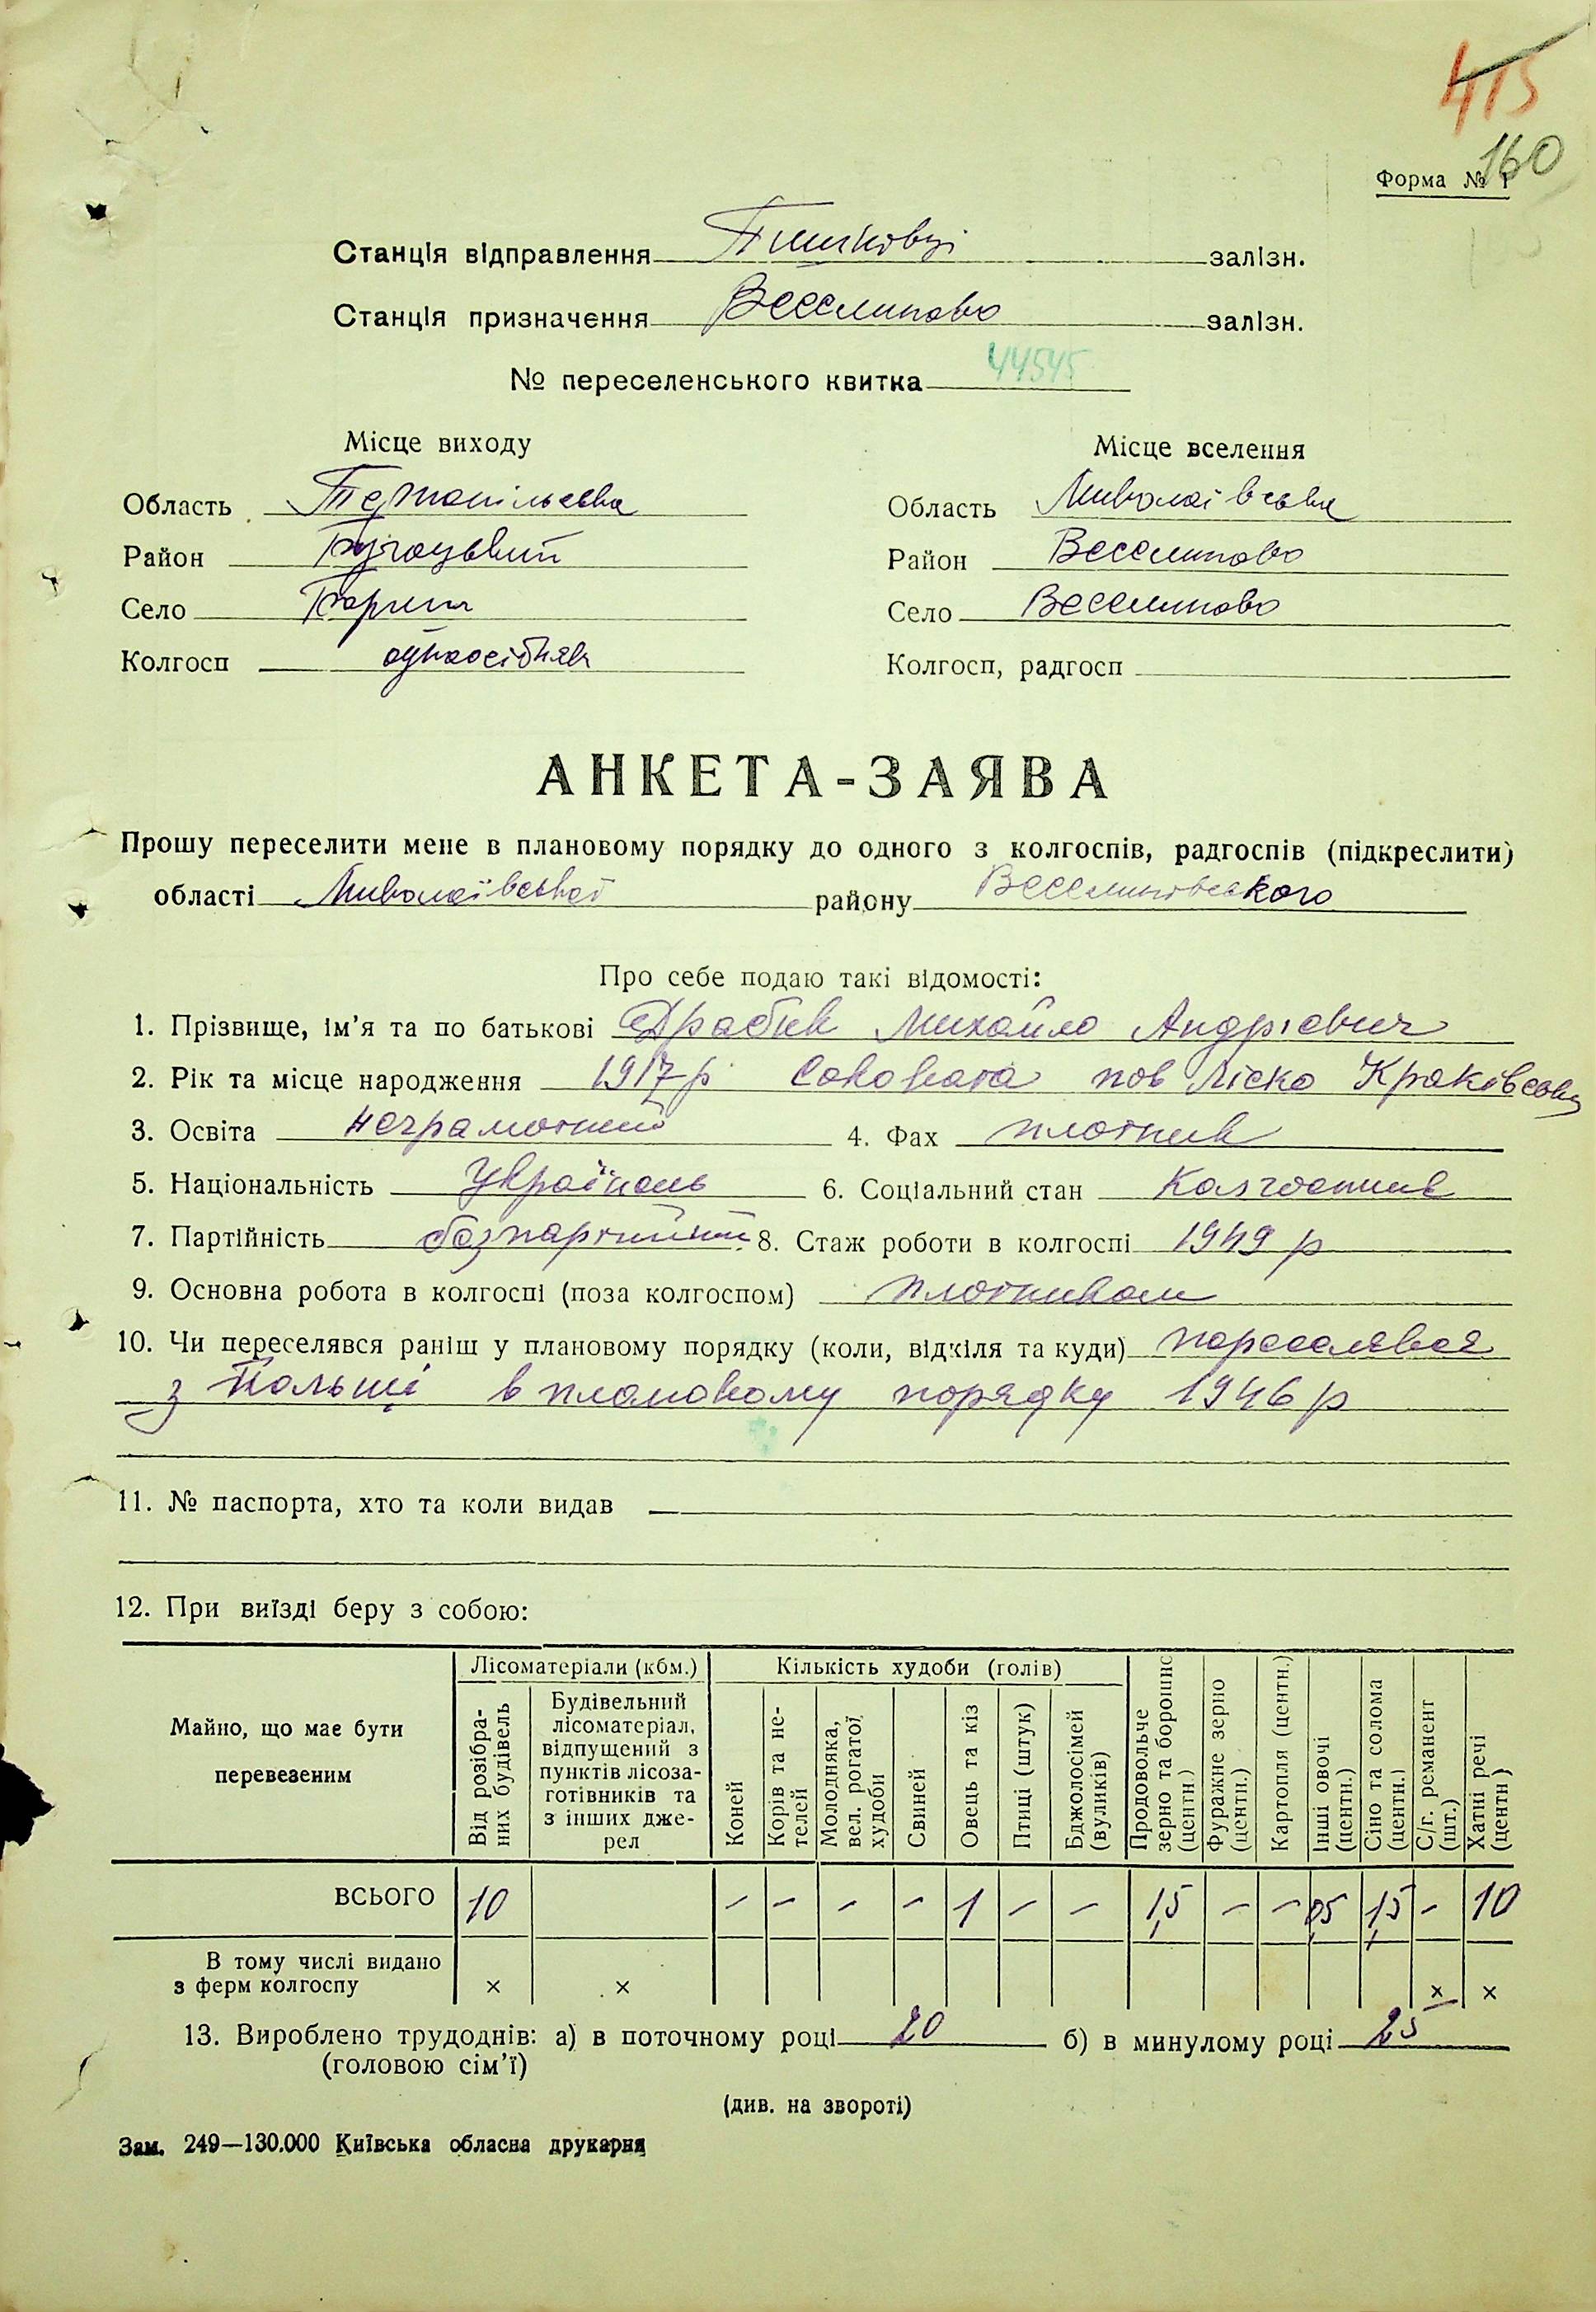 415
160
Форма № 1
Станція відправлення Пишківці залізн.
Станція призначення Веселиново залізн.
№ переселенського квитка 44545
Місце виходу
Місце вселення
Область Тернопільська
Область Миколаївська
Район Бучацький
Район Веселиново
Село Бариш
Село Веселиново
Колгосп
Колгосп, радгосп
АНКЕТА-ЗАЯВА
Прошу переселити мене в плановому порядку до одного з колгоспів, радгоспів (підкреслити)
області Миколаївської району Веселинівського
Про себе подаю такі відомості:
1. Прізвище, ім’я та по батькові Драбик Михайло Андрієвич
2. Рік та місце народження 1917 р пов Ліско Краківська
3. Освіта неграмотний 4. Фах плотник
5. Національність Українець 6. Соціальний стан Колгоспник
7. Партійність безпартійний 8. Стаж роботи в колгоспі 1949 р
9. Основна робота в колгоспі (поза колгоспом) плотником
10. Чи переселявся раніш у плановому порядку (коли, відкіля та куди) переселявся
з Польщі в плановому порядку 1946 р
11. № паспорта, хто та коли видав
12. При виїзді беру з собою:
Майно, що має бути перевезеним
Лісоматеріали (кбм.)
Кількість худоби (голів)
Від розібра-
них будівель
Будівельний
лісоматеріал,
відпущений з
пунктів лісоза-
готівників та
з інших дже-
рел
Коней
Корів та не-
телей
Молодняка,
вел. рогатої
худоби
Свиней
Овець та кіз
Птиці (штук)
Бджолосімей
(вуликів)
Продовольче
зерно та борошно
(центн.)
Фуражне зерно
(центн.)
Картопля (центн.)
Інші овочі
(центн.)
Сіно та солома
(центн.)
С/г. реманент
(шт.)
Хатні речі
(центн)
ВСЬОГО 10 – – – – 1 – – 1,5 – – 0,5 1,5 – 10
В тому числі видано
з ферм колгоспу × × × ×
13. Вироблено трудоднів: а) в поточному році 20 б) в минулому році 25
(головою сім’ї)
(див. на звороті)
Зам. 249—130.000 Київська обласна друкарня